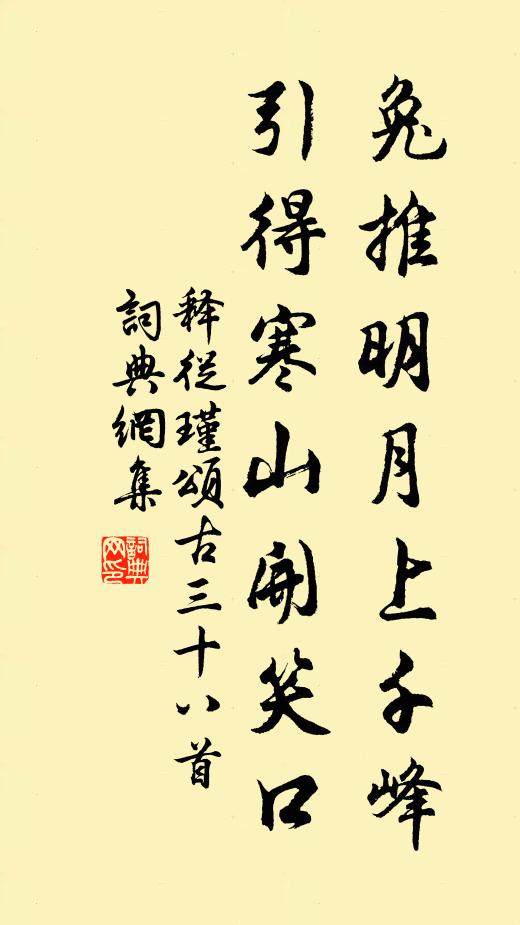 兔推明月上千峰
引得寒山開笑口
释從瑾頌古三十八首
詞典網集
詞典網印